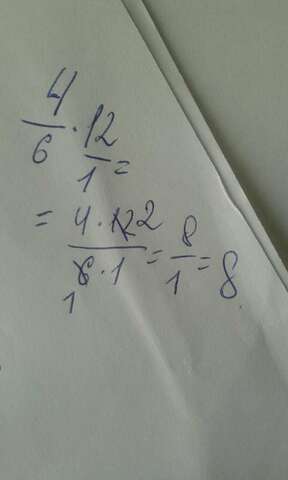 4/6 · 12/1 =
= 4 · 12 2 / 6 · 1 1 = 8/1 = 8.